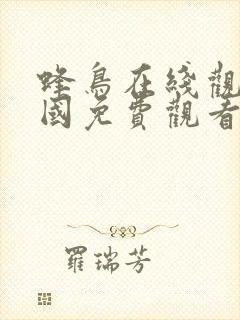 蜂鳥在綫觀
國免費觀看
羅瑞芳